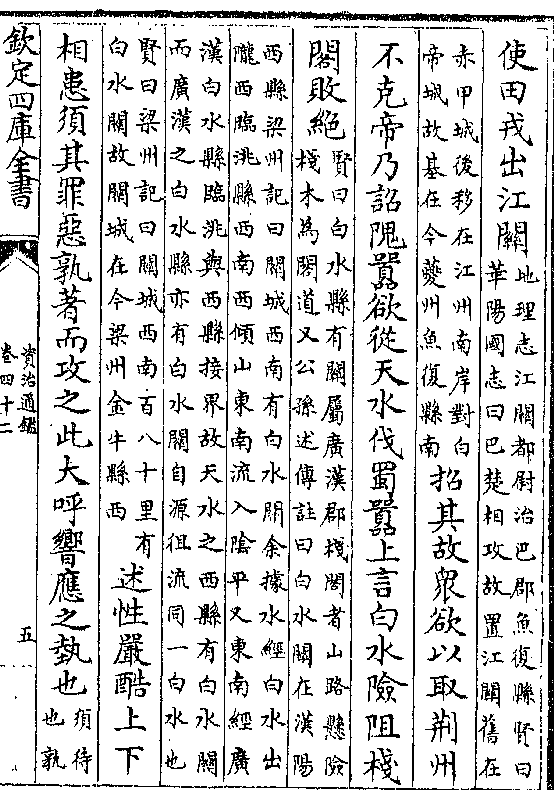 使田戎出江關地理志江關都尉治巴郡魚復縣賢曰
華陽國志曰巴楚相攻故置江關舊在
赤甲城後移在江州南岸對白
帝城故基在今夔州魚復縣南招其故衆欲以取荆州
不克帝乃詔隗囂欲從天水伐蜀囂上言白水險阻棧
閣敗絕賢曰白水縣有關屬廣漢郡棧閣者山路懸險
棧木為閣道又公孫述傳註曰白水關在漢陽
西縣梁州記曰關城西南有白水關余據水經白水出
隴西臨洮縣西南西傾山東南流入陰平又東南經廣
漢白水縣臨洮與西縣接界故天水之西縣有白水關
而廣漢之白水縣亦有白水關自源徂流同一白水也
賢曰梁州記曰關城西南百八十里有
白水關故關城在今梁州金牛縣西述性嚴酷上下
相患須其罪惡孰著而攻之此大呼響應之埶也須待
也孰
欽定四庫全書
資治通鑑
卷四十二
五